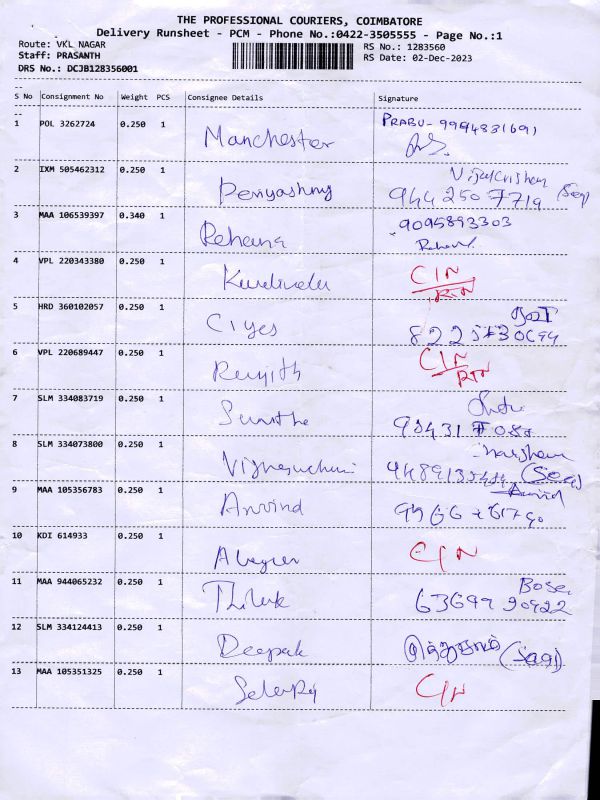 THE PROFESSIONAL COURIERS, COIMBATORE
Delivery Runsheet - PCM - Phone No.:0422-3505555 - Page No.:1
Route: VKL NAGAR
Staff: PRASANTH
DRS No.: DCJB128356001
RS No.: 1283560
RS Date: 02-Dec-2023
S No Consignment No Weight PCS Consignee Details Signature
1 POL 3262724 0.250 1 Manchester PRABU - 9994831691
2 IXM 505462312 0.250 1
3 MAA 106539397 0.340 1 Rehana 9095893303
4 VPL 220343380 0.250 1 CIN
RTN
5 HRD 360102057 0.250 1 Ciyes
6 VPL 220689447 0.250 1 Renjith CIN
RTN
7 SLM 334083719 0.250 1
8 SLM 334073800 0.250 1
9 MAA 105356783 0.250 1 Arvind
10 KDI 614933 0.250 1 CIN
11 MAA 944065232 0.250 1 Bose
63699 20922
12 SLM 334124413 0.250 1 Deepak
13 MAA 105351325 0.250 1 CIN